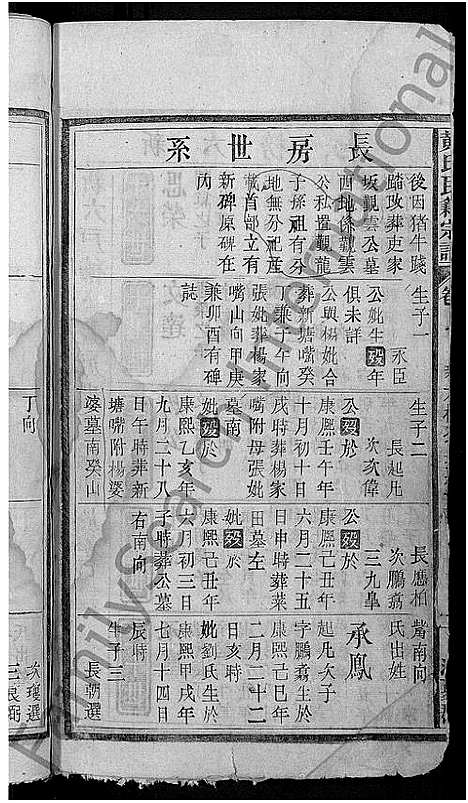 長房世系
後因猪牛踐
踏攻葬吏家
坂觀雲公墓
西地係觀雲
公私置觀龍
子孫祖有分
地無分祀産
載首部立有
新碑原碑在
内
生子一
永臣
公妣生殁年
俱未詳
公與楊妣合
葬新塘嘴癸
丁兼子午向
張妣葬楊家
嘴山向甲庚
兼卯酉有碑
誌
生子二
長起凡
次次偉
公殁於
康熙壬午年
十月初十日
戌時葬楊家
嘴附母張妣
墓南
妣殁於
康熙乙亥年
九月二十八
日午時葬新
塘嘴附楊婆
婆墓南癸山
丁向
長鳳柏
次鵬翥
三九皐
公殁於
康熙己丑年
六月二十五
日申時葬菜
田墓左
妣殁於
康熙己丑年
六月初三日
子時葬公墓
右南向
氏出姓
嘴南向
承鳳
起凡次子
字鵬翥生於
康熙己巳年
二月二十二
日亥時
妣劉氏生於
康熙甲戌年
七月十四日
辰時
生子三
長朝選
次瓊選
FamilySearch International